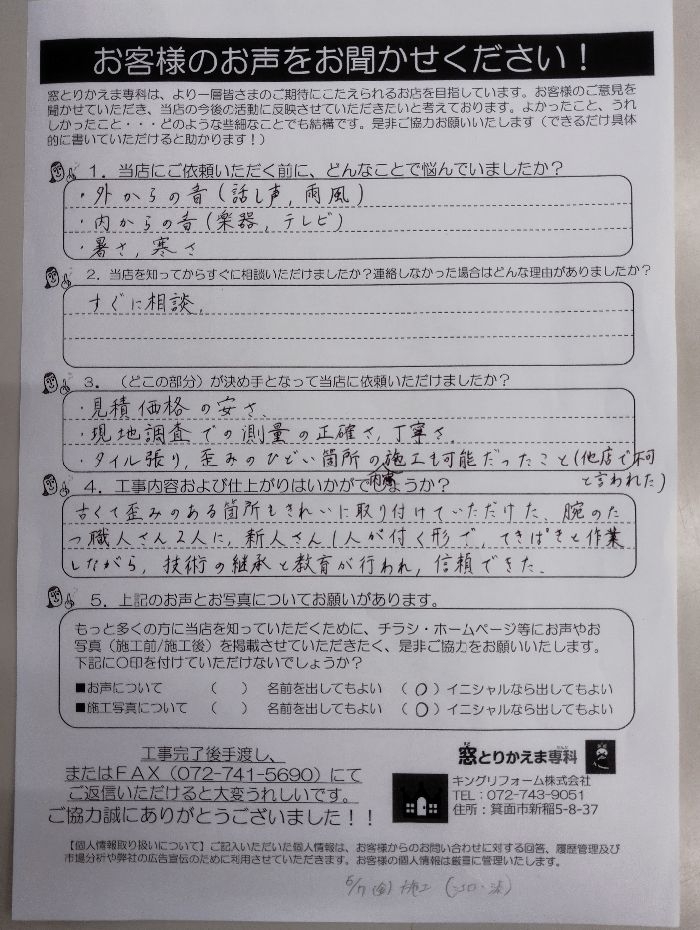 お客様のお声をお聞かせください！
窓とりかえま専科は、より一層皆さまのご期待にこたえられるお店を目指しています。お客様のご意見を
聞かせていただき、当店の今後の活動に反映させていただきたいと考えております。よかったこと、うれ
しかったこと・・・どのような些細なことでも結構です。是非ご協力お願いいたします（できるだけ具体
的に書いていただけると助かります！）
１．当店にご依頼いただく前に、どんなことで悩んでいましたか？
・外からの音（話し声，雨風）
・内からの音（楽器，テレビ）
・暑さ，寒さ
２．当店を知ってからすぐに相談いただけましたか？連絡しなかった場合はどんな理由がありましたか？
すぐに相談．
３．（どこの部分）が決め手となって当店に依頼いただけましたか？
・見積価格の安さ．
・現地調査での測量の正確さ，丁寧さ．
・タイル張り，歪みのひどい箇所の内窓施工も可能だったこと（他店で不可
と言われた）
４．工事内容および仕上がりはいかがでしょうか？
古くて歪みのある箇所もきれいに取り付けていただけた．腕のた
つ職人さん2人に，新人さん1人が付く形で，てきぱきと作業
しながら，技術の継承と教育が行われ，信頼できた．
５．上記のお声とお写真についてお願いがあります。
もっと多くの方に当店を知っていただくために、チラシ・ホームページ等にお声やお
写真（施工前/施工後）を掲載させていただきたく、是非ご協力をお願いいたします。
下記に〇印を付けていただけないでしょうか？
■お声について （ ） 名前を出してもよい （〇）イニシャルなら出してもよい
■施工写真について （ ） 名前を出してもよい （〇）イニシャルなら出してもよい
工事完了後手渡し、
またはＦＡＸ（072-741-5690）にて
ご返信いただけると大変うれしいです。
ご協力誠にありがとうございました！！
窓とりかえま専科
キングリフォーム株式会社
TEL：072-743-9051
住所：箕面市新稲5-8-37
【個人情報取り扱いについて】ご記入いただいた個人情報は、お客様からのお問い合わせに対する回答、履歴管理及び
市場分析や弊社の広告宣伝のために利用させていただきます。お客様の個人情報は厳重に管理いたします。
6/7(金) 施工